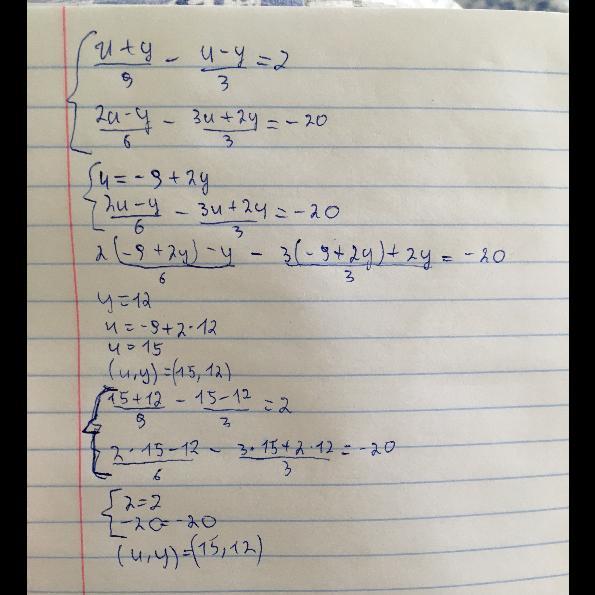 { (u+y)/9 - (u-y)/3 = 2
(2u-y)/6 - (3u+2y)/3 = -20
{ u = -9+2y
(2u-y)/6 - (3u+2y)/3 = -20
(2(-9+2y)-y)/6 - (3(-9+2y)+2y)/3 = -20
y=12
u = -9+2·12
u=15
(u,y)=(15,12)
{ (15+12)/9 - (15-12)/3 = 2
(2·15-12)/6 - (3·15+2·12)/3 = -20
{ 2=2
-20=-20
(u,y)=(15,12)